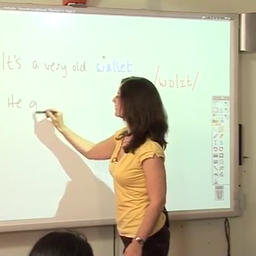 It's a very old wallet
/wɒlɪt/
He g